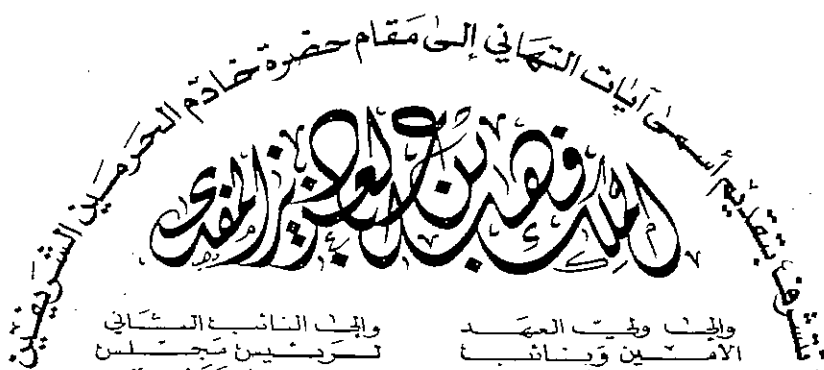 تتشرف بتقديم أسمى آيات التهاني إلى مقام حضرة خادم الحرمين الشريفين
الملك فهد بن عبد العزيز المفدى
وإلى ولي العهد
الأمين ونائب
وإلى النائب الثاني
لرئيس مجلس